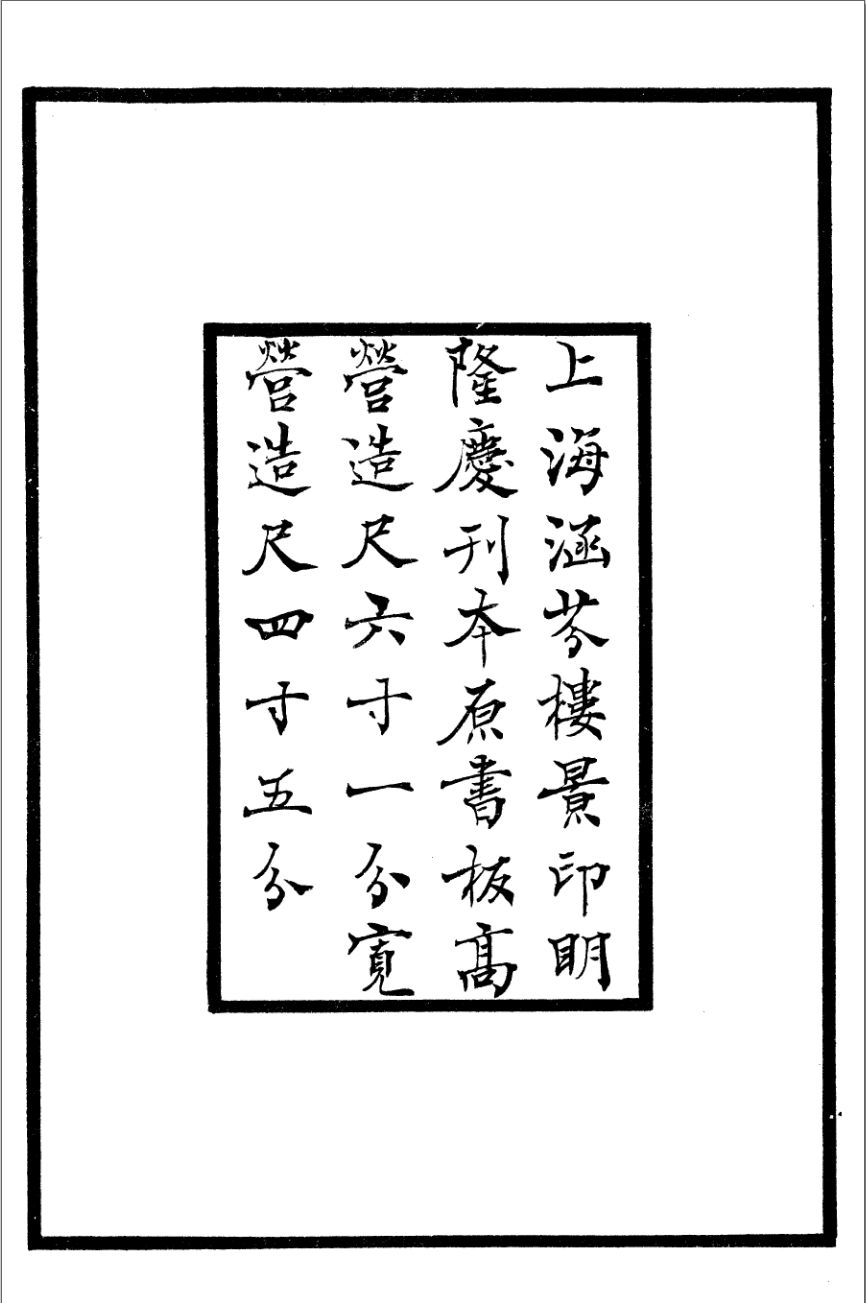 上海涵芬樓景印明
隆慶刊本原書板高
營造尺六寸一分寬
營造尺四寸五分